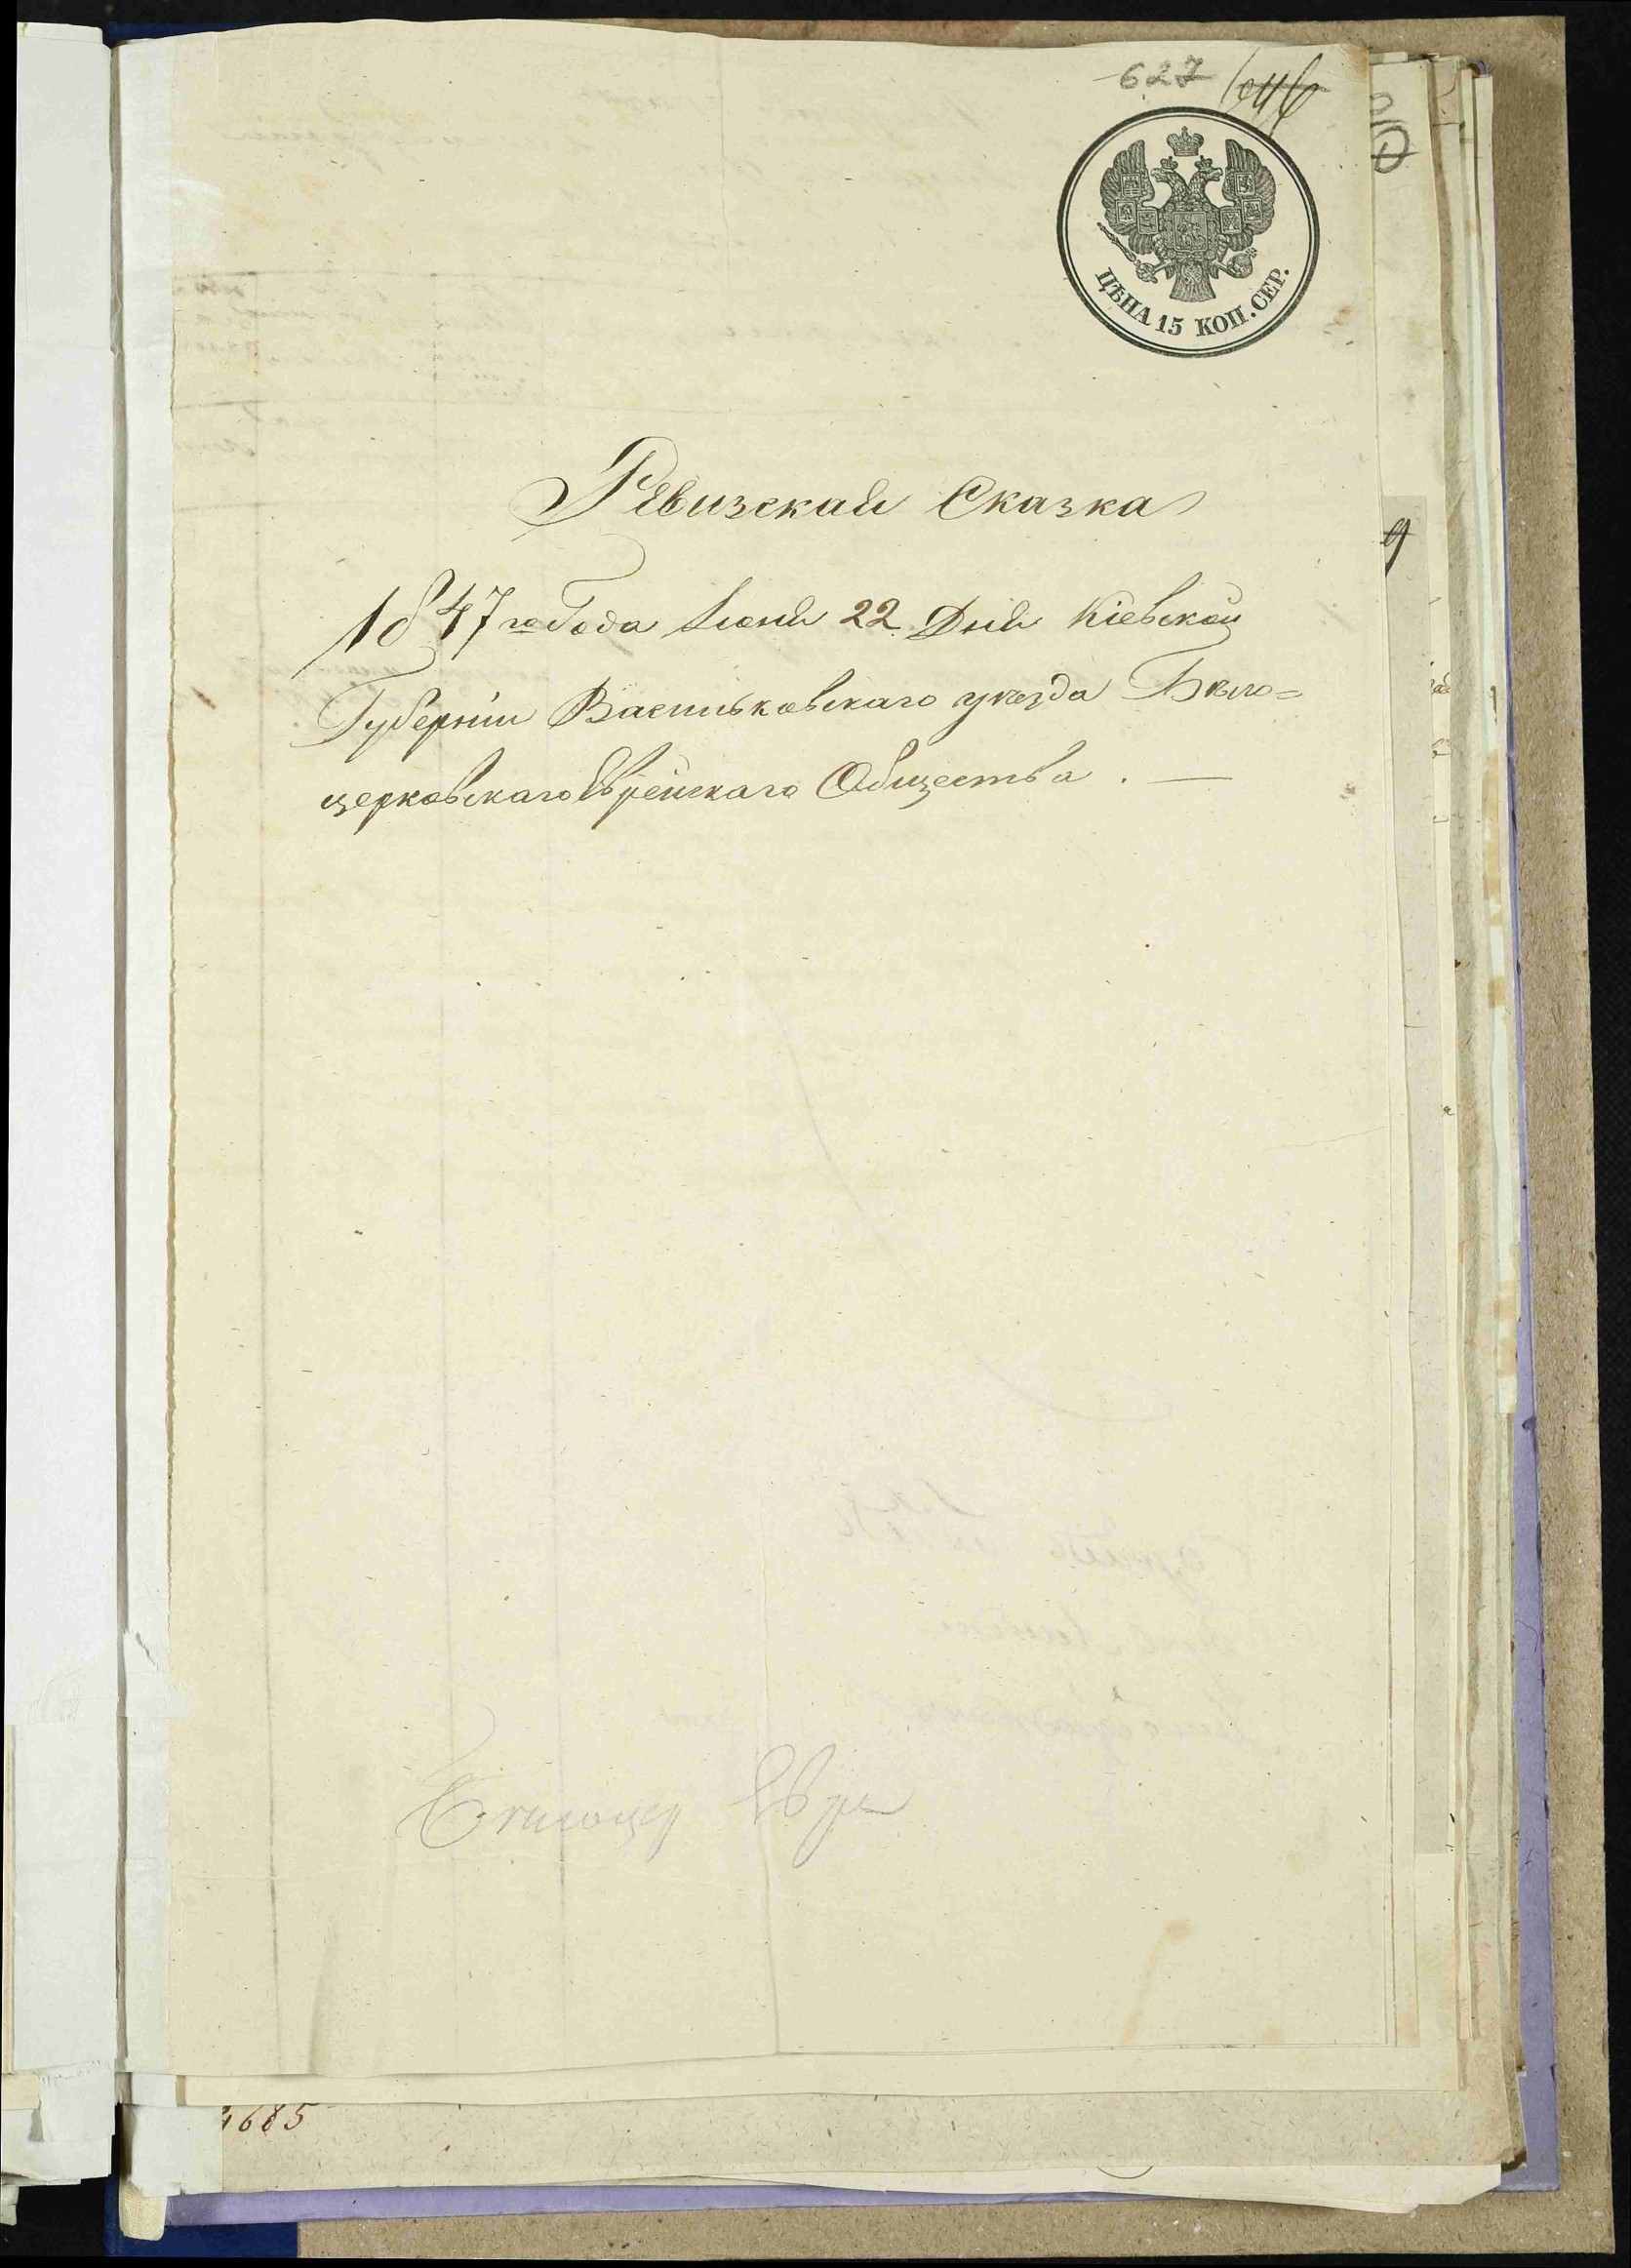 627
ЦѢНА 15 КОП. СЕР.
Ревизская Сказка
1847го Года Іюня 22 Дня Кіевской
Губерніи Васильковскаго уѣзда Бѣло=
церковскаго Еврейскаго Общества. —
Бѣлоцер Евре
4685